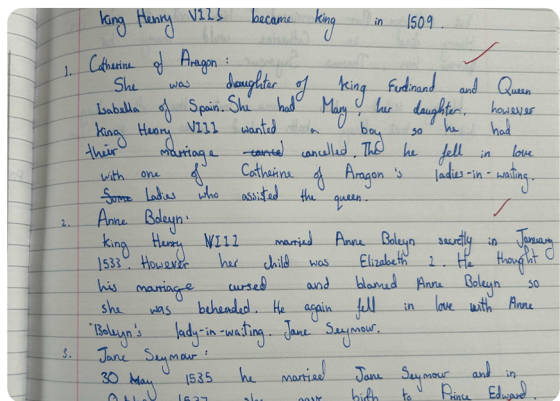 King Henry VIII became king in 1509.
1. Catherine of Aragon:
She was daughter of King Ferdinand and Queen
Isabella of Spain. She had Mary, her daughter, however
King Henry VIII wanted a boy so he had
their marriage cancelled. The he fell in love
with one of Catherine of Aragon's ladies-in-waiting.
Some Ladies who assisted the queen.
2. Anne Boleyn:
King Henry VIII married Anne Boleyn secretly in January
1533. However her child was Elizabeth I. He thought
his marriage cursed and blamed Anne Boleyn so
she was beheaded. He again fell in love with Anne
Boleyn's lady-in-waiting. Jane Seymour.
3. Jane Seymour:
30 May 1535 he married Jane Seymour and in
1537 she gave birth to Prince Edward.